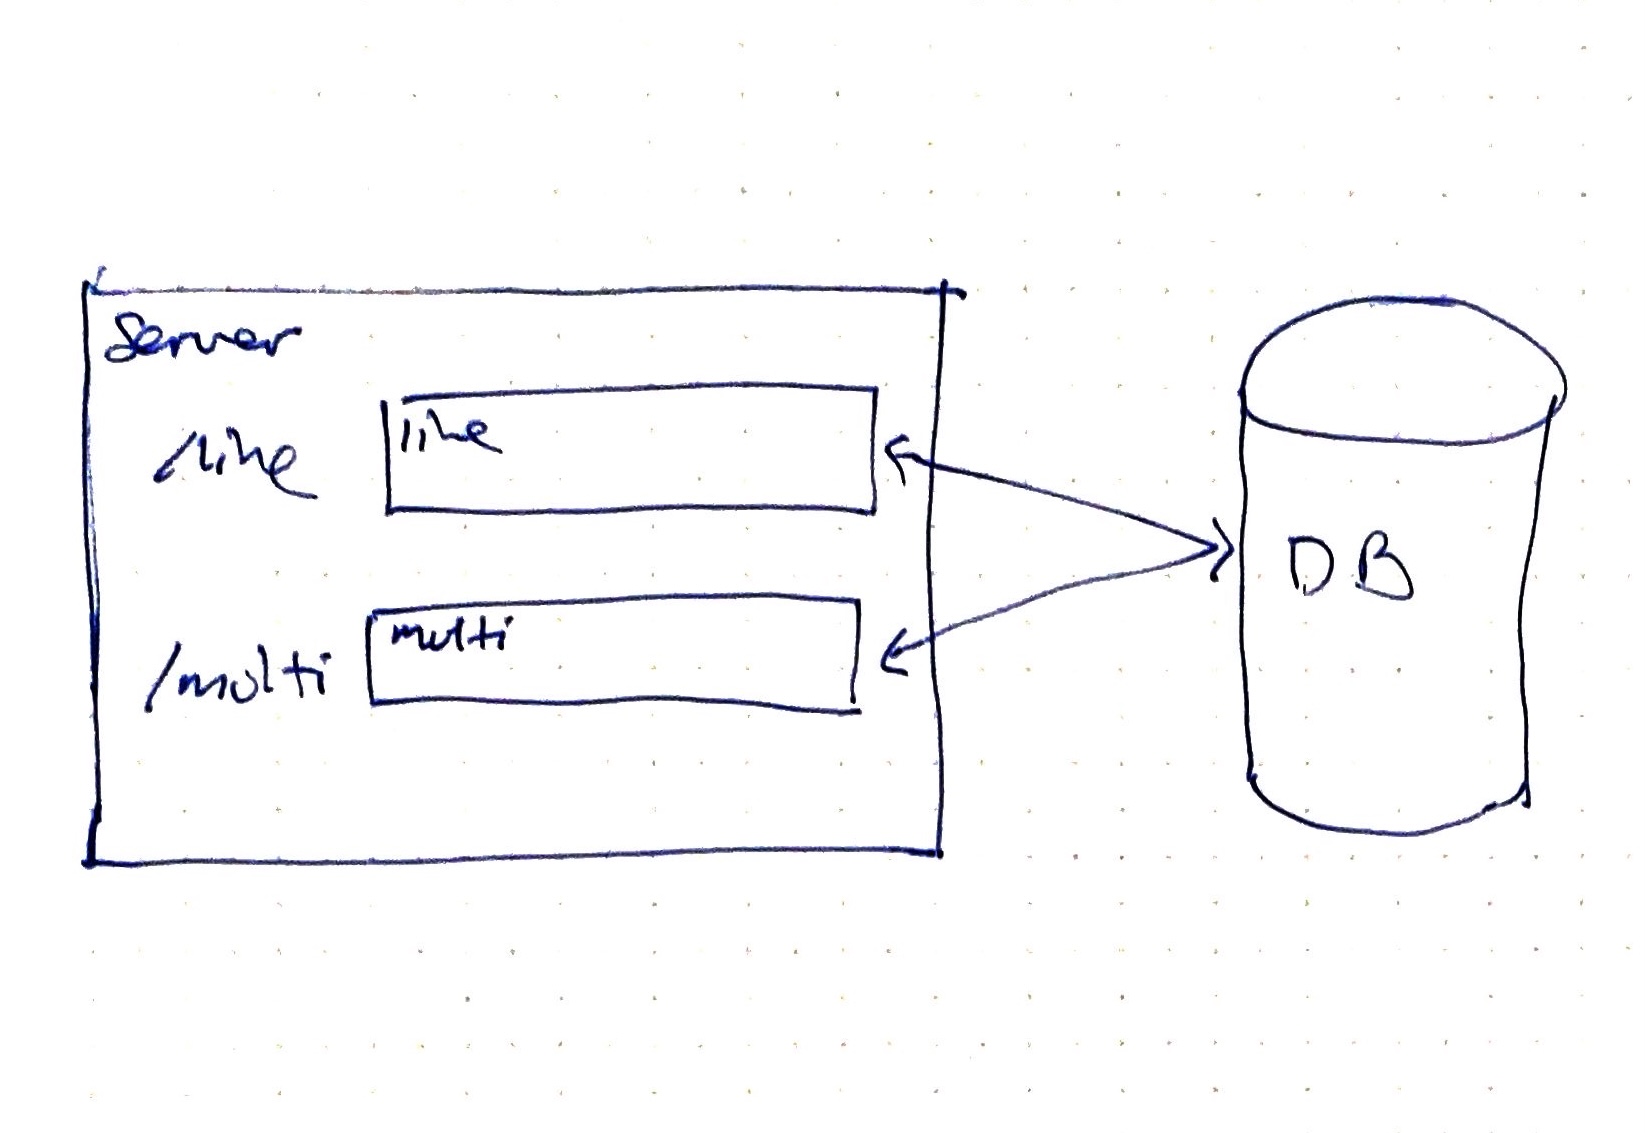 Server
/line
line
/multi
multi
DB